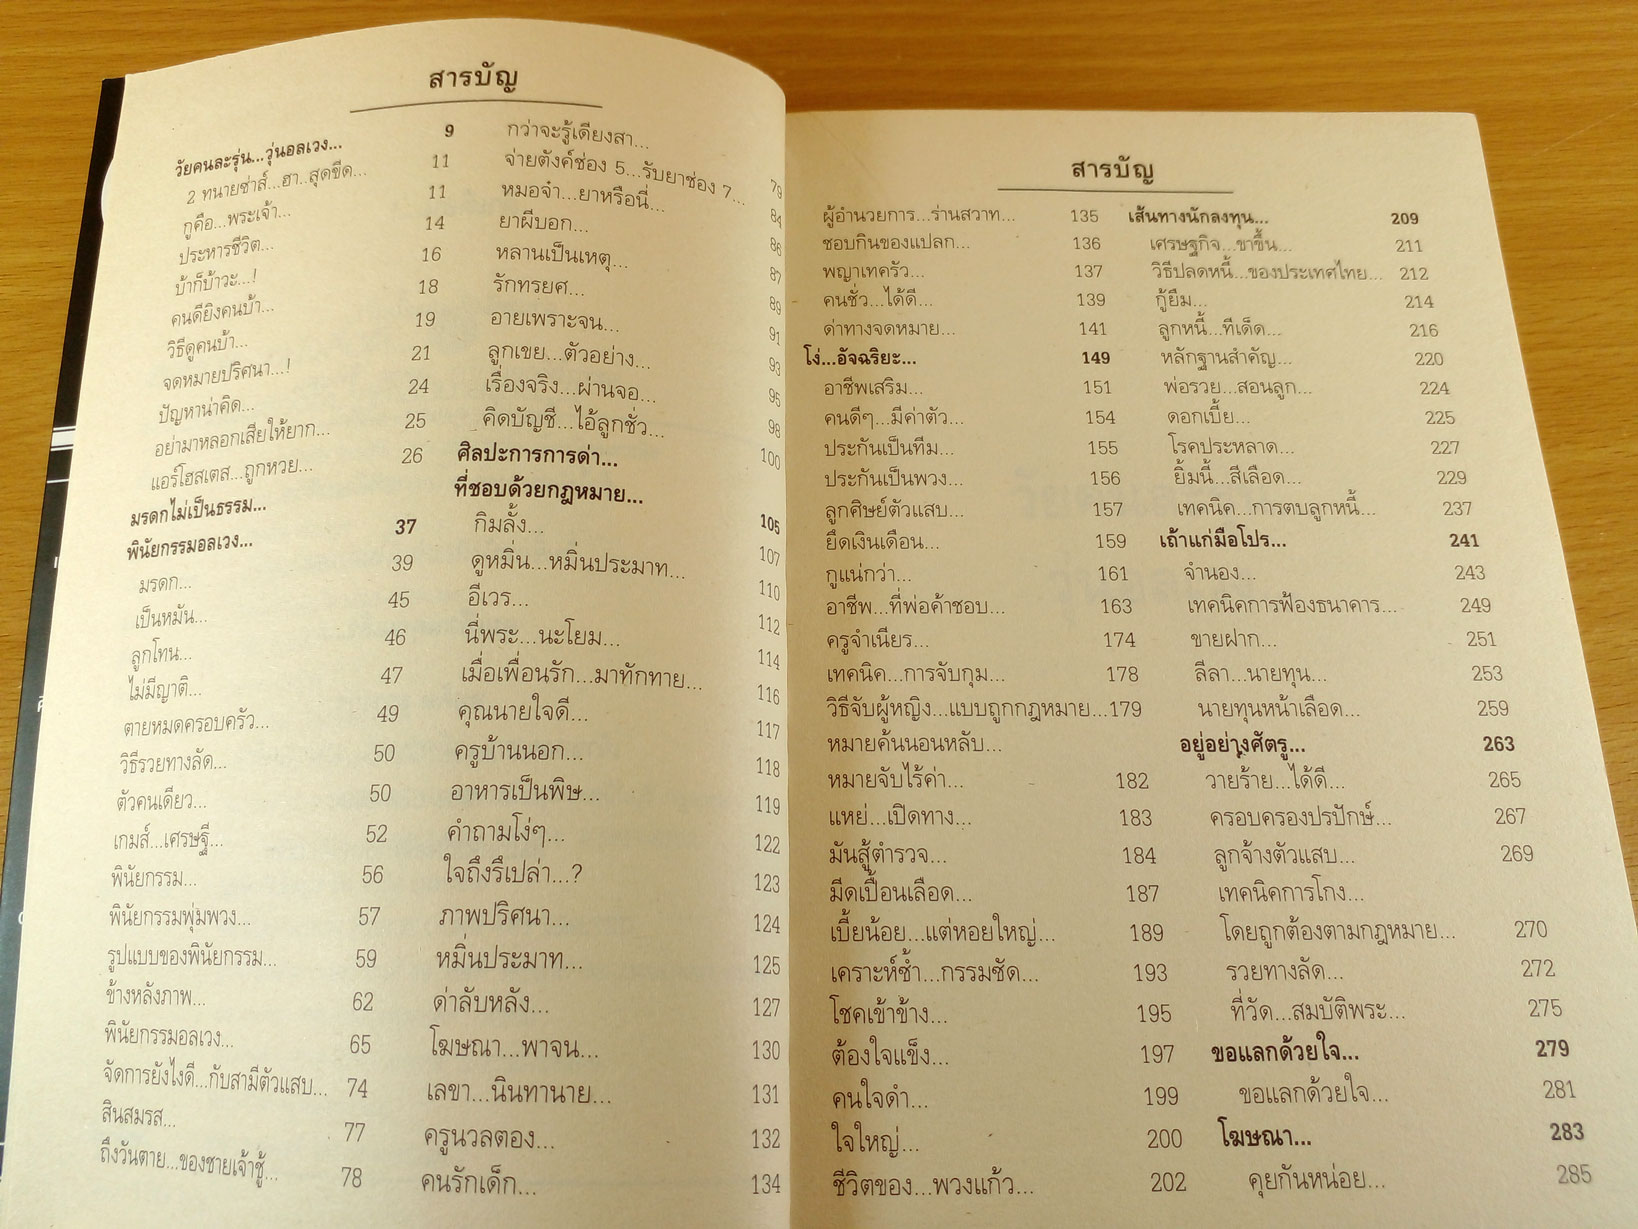 สารบัญ
วัยคนละรุ่น...วุ่นอลเวง... 9
2 ทนายซ่าส์...ฮา..สุดขีด... 11
กูคือ...พระเจ้า... 11
ประหารชีวิต... 14
บ้าก็บ้าวะ...! 16
คนดียิงคนบ้า... 18
วิธีดูคนบ้า... 19
จดหมายปริศนา...! 21
ปัญหาน่าคิด... 24
อย่ามาหลอกเสียให้ยาก... 25
แอร์โฮสเตส...ถูกหวย... 26
มรดกไม่เป็นธรรม...
พินัยกรรมอลเวง... 37
มรดก... 39
เป็นหมัน... 45
ลูกโทน... 46
ไม่มีญาติ... 47
ตายหมดครอบครัว... 49
วิธีรวยทางลัด... 50
ตัวคนเดียว... 50
เกมส์...เศรษฐี... 52
พินัยกรรม... 56
พินัยกรรมพุ่มพวง... 57
รูปแบบของพินัยกรรม... 59
ข้างหลังภาพ... 62
พินัยกรรมอลเวง... 65
จัดการยังไงดี...กับสามีตัวแสบ... 74
สินสมรส... 77
ถึงวันตาย...ของชายเจ้าชู้... 78
กว่าจะรู้เดียงสา... 79
จ่ายตังค์ช่อง 5...รับยาช่อง 7... 84
หมอจ๋า...ยาหรือนี่... 86
ยาผีบอก... 87
หลานเป็นเหตุ... 89
รักทรยศ... 91
อายเพราะจน... 93
ลูกเขย...ตัวอย่าง... 95
เรื่องจริง...ผ่านจอ... 98
คิดบัญชี...ไอ้ลูกชั่ว... 100
ศิลปะการการด่า...
ที่ชอบด้วยกฎหมาย... 105
กิมลั้ง... 107
ดูหมิ่น...หมิ่นประมาท... 110
อีเวร... 112
นี่พระ...นะโยม... 114
เมื่อเพื่อนรัก...มาทักทาย... 116
คุณนายใจดี... 117
ครูบ้านนอก... 118
อาหารเป็นพิษ... 119
คำถามโง่ๆ... 122
ใจถึงรึเปล่า...? 123
ภาพปริศนา... 124
หมิ่นประมาท... 125
ด่าลับหลัง... 127
โฆษณา...พาจน... 130
เลขา...นินทานาย... 131
ครูนวลตอง... 132
คนรักเด็ก... 134
สารบัญ
ผู้อำนวยการ...ร่านสวาท... 135
ชอบกินของแปลก... 136
พญาเทครัว... 137
คนชั่ว...ได้ดี... 139
ด่าทางจดหมาย... 141
โง่...อัจฉริยะ... 149
อาชีพเสริม... 151
คนดีๆ...มีค่าตัว... 154
ประกันเป็นทีม... 155
ประกันเป็นพวง... 156
ลูกศิษย์ตัวแสบ... 157
ยึดเงินเดือน... 159
กูแน่กว่า... 161
อาชีพ...ที่พ่อค้าชอบ... 163
ครูจำเนียร... 174
เทคนิค...การจับกุม... 178
วิธีจับผู้หญิง...แบบถูกกฎหมาย...179
หมายค้นนอนหลับ...
หมายจับไร้ค่า... 182
แหย่...เปิดทาง... 183
มันสู้ตำรวจ... 184
มีดเปื้อนเลือด... 187
เบี้ยน้อย...แต่หอยใหญ่... 189
เคราะห์ซ้ำ...กรรมซัด... 193
โชคเข้าข้าง... 195
ต้องใจแข็ง... 197
คนใจดำ... 199
ใจใหญ่... 200
ชีวิตของ...พวงแก้ว... 202
เส้นทางนักลงทุน... 209
เศรษฐกิจ...ขาขึ้น... 211
วิธีปลดหนี้...ของประเทศไทย... 212
กู้ยืม... 214
ลูกหนี้...ทีเด็ด... 216
หลักฐานสำคัญ... 220
พ่อรวย...สอนลูก... 224
ดอกเบี้ย... 225
โรคประหลาด... 227
ยิ้มนี้...สีเลือด... 229
เทคนิค...การตบลูกหนี้... 237
เถ้าแก่มือโปร... 241
จำนอง... 243
เทคนิคการฟ้องธนาคาร... 249
ขายฝาก... 251
ลีลา...นายทุน... 253
นายทุนหน้าเลือด... 259
อยู่อย่างศัตรู... 263
วายร้าย...ได้ดี... 265
ครอบครองปรปักษ์... 267
ลูกจ้างตัวแสบ... 269
เทคนิคการโกง...
โดยถูกต้องตามกฎหมาย... 270
รวยทางลัด... 272
ที่วัด...สมบัติพระ... 275
ขอแลกด้วยใจ... 279
ขอแลกด้วยใจ... 281
โฆษณา... 283
คุยกันหน่อย... 285